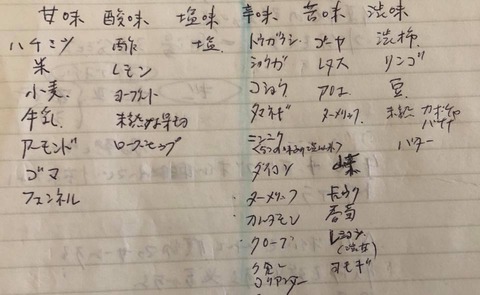 甘味 酸味 塩味 辛味 苦味 渋味
ハチミツ 酢 塩 トウガラシ ゴーヤ 渋柿
米 レモン ショウガ レタス リンゴ
小麦 ヨーグルト コショウ アロエ 豆
牛乳 未熟な果物 タマネギ ターメリック 未熟 カボチャ バナナ
アーモンド ローズヒップ ニンニク バター
ゴマ ダイコン
フェンネル ・ターメリック
・カルダモン
・クローブ ヨモギ
コリアンダー